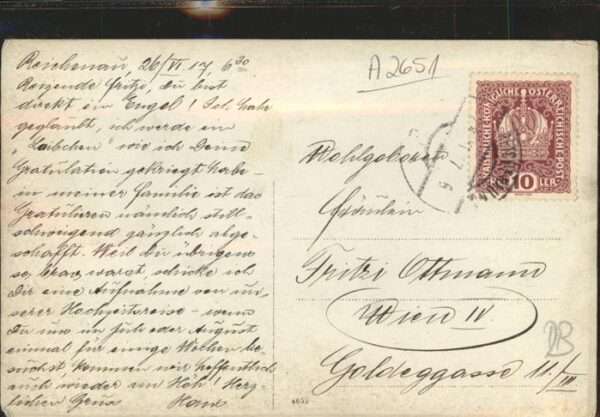 Reichenau, 26/VI 17, 6 30
Reizende Fritzi, Du bist
direkt ein Engel! Ich hab
geglaubt, ich werde ein
"Laibchen" wie ich Deine
Gratulation gekriegt habe -
in meiner Familie ist das
Gratulieren nämlich still-
schweigend gänzlich abge-
schafft. Weil Du übrigens
so brav warst, schicke ich
Dir eine Aufnahme von un-
serer Hochzeitsreise - wenn
Du uns im Juli oder August
einmal für einige Wochen be-
suchst, kommen wir hoffentlich
auch wieder in Höh! Herz-
lichen Gruss Hans
A2651
KAISERLICHE KÖNIGLICHE ÖSTERREICHISCHE POST
10
Wohlgeboren
Fräulein
Fritzi Ottmann
Wien IV
Goldeggasse 11/III
DB